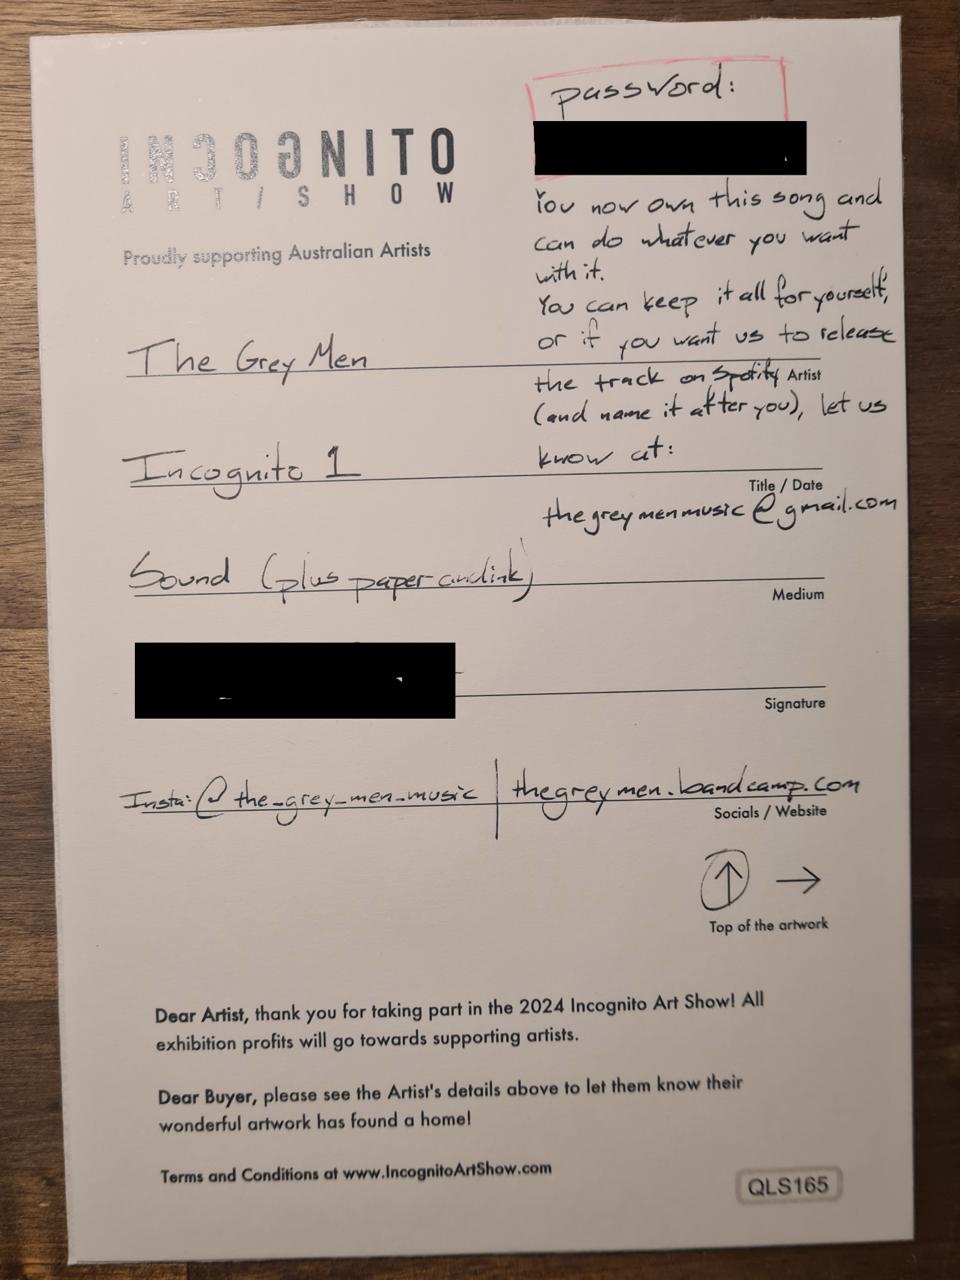 password:
INCOGNITO
ART/SHOW
Proudly supporting Australian Artists
You now own this song and
can do whatever you want
with it.
You can keep it all for yourself,
or if you want us to release
the track on Spotify
(and name it after you), let us
know at:
thegreymenmusic@gmail.com
The Grey Men
Artist
Incognito 1
Title / Date
Sound (plus paper and ink)
Medium
Signature
Insta: @the_grey_men_music | thegreymen.bandcamp.com
Socials / Website
↑ →
Top of the artwork
Dear Artist, thank you for taking part in the 2024 Incognito Art Show! All
exhibition profits will go towards supporting artists.
Dear Buyer, please see the Artist's details above to let them know their
wonderful artwork has found a home!
Terms and Conditions at www.IncognitoArtShow.com
QLS165